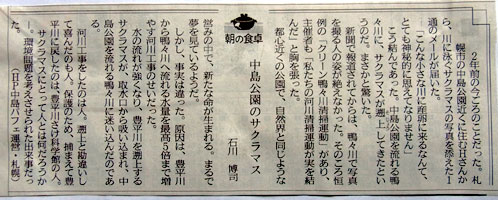 朝の食卓
中島公園のサクラマス
石川 博司
2年前の今ごろのことだった。札
幌市の中島公園近くに住むHさんか
ら、川に泳ぐサクラマスの写真を添えた1
通のメールが届いた。
とても神秘的に思えてなりません」
と結んであった。中島公園を流れる鴨
々川に、サクラマスが遡上してきたとい
うのだ。まさかと驚いた。
新聞で報道されてからは、鴨々川で写真
を撮る人の姿が絶えなかった。そのころ恒
例の「クリーン鴨々川清掃運動」があり、
主催者も「私たちの河川清掃運動が実を結
んだ」と胸を張った。
都心近くの公園で、自然界と同じような
営みの中で、新たな命が生まれる。まるで
夢を見ているようだ。
しかし、事実は違った。原因は、豊平川
から鴨々川へ流れる水量を最高5倍まで増
やす河川工事のせいだった。
水の流れが強くなり、豊平川を遡上する
サクラマスが、取水口から吸い込まれ、中
島公園を流れる鴨々川に迷い込んだのであ
る。
河川工事をしたのは人。遡上と勘違いし
て喜んだのも人。保護のため、捕まえて豊
平川に戻したのは、豊平川さけ科学館の人。
サクラマスにとって人とは何だろうか
―環境問題を考えさせられた出来事だっ
た。
（HP中島パフェ運営・札幌）